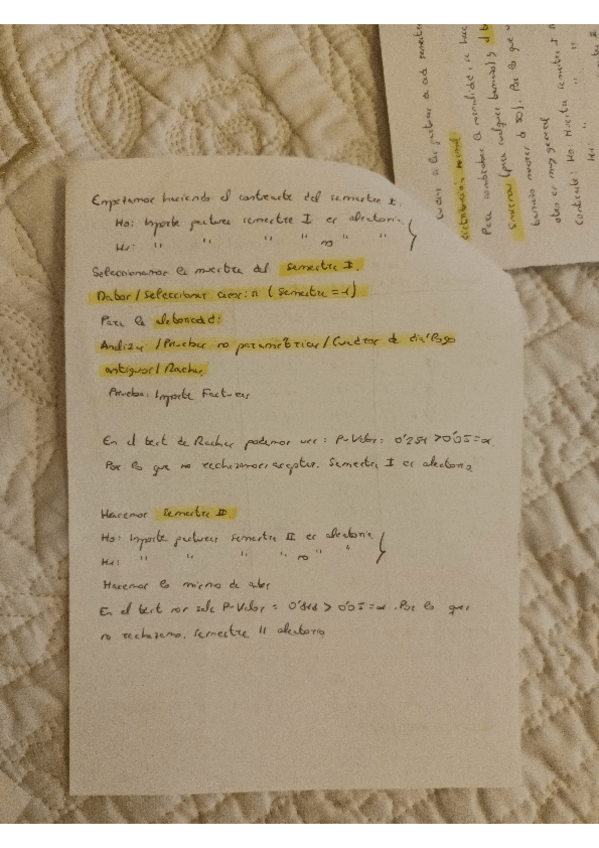 Empezamos haciendo el contraste del semestre I.
Ho: Importe facturas semestre I es aleatoria
H1: " " " " no " "
Seleccionamos la muestra del semestre I.
Datos/Seleccionar casos: si (semestre=1)
Para la aleatoriedad:
Analizar/Pruebas no paramétricas/Cuadros de diálogo
antiguos/Rachas
Prueba: Importe Facturas
En el test de Rachas podemos ver: P-Valor: 0'251 > 0'05 = α.
Por lo que no rechazamos, aceptar. Semestre I es aleatorio.
Hacemos semestre II.
Ho: Importe facturas semestre II es aleatoria
H1: " " " " no " "
Hacemos lo mismo de antes
En el test nos sale P-Valor = > 0'05 = α. Por lo que
no rechazamos. Semestre II aleatorio
distribución normal
Para comprobar la normalidad, se hac
Smirnov (para cualquier tamaño) y
tamaño menor de 50). Por lo que
es muy general
Contraste: Ho: Muestra semestre I
H1: " "